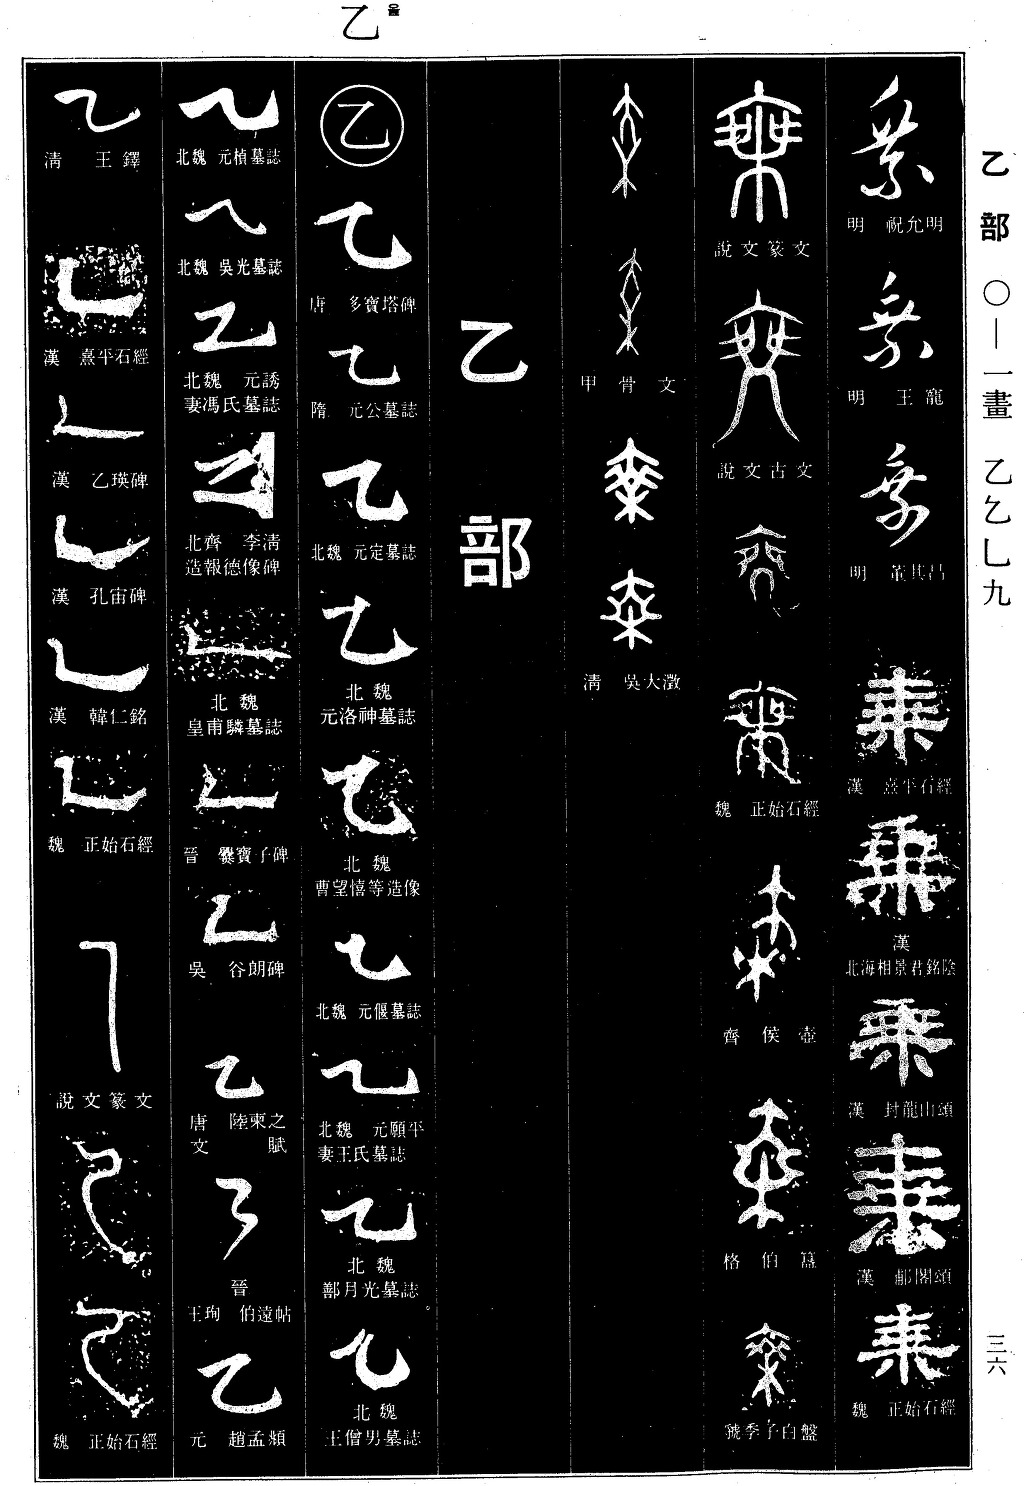 乙
을
乙部 〇—一畫 乙乞乚九
三六
明 祝允明
明 王寵
明 董其昌
漢 熹平石經
漢
北海相景君銘陰
漢 封龍山頌
漢 郙閣頌
魏 正始石經
說文篆文
說文古文
魏 正始石經
齊侯壺
格伯簋
虢季子白盤
甲骨文
清 吳大澂
乙部
乙
唐 多寶塔碑
隋 元公墓誌
北魏 元定墓誌
北魏
元洛神墓誌
北魏
曹望憘等造像
北魏 元偃墓誌
北魏 元願平
妻王氏墓誌
北魏
鄯月光墓誌
北魏
王僧男墓誌
北魏 元楨墓誌
北魏 吳光墓誌
北魏 元誘
妻馮氏墓誌
北齊 李清
造報德像碑
北魏
皇甫驎墓誌
晉 爨寶子碑
吳 谷朗碑
唐 陸柬之
文賦
晉
王珣 伯遠帖
元 趙孟頫
清 王鐸
漢 熹平石經
漢 乙瑛碑
漢 孔宙碑
漢 韓仁銘
魏 正始石經
說文篆文
魏 正始石經